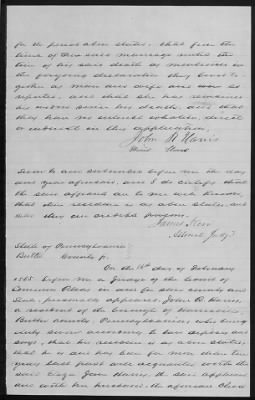 for the period above stated, that from the
time of their said marriage until the
time of his said death as mentioned in
the foregoing declaration they lived to-
gether as man and wife and were so
reputed, and that she has remained
his widow since his death, and that
they have no interest whatever, direct
or indirect in this application.
John R Harris
Sworn to and subscribed before me the day
and year aforesaid, and I do certify that
the said affiant are to me well known,
that their residence is as above stated, and
that they are credible persons.
James Kerr
Associate Judge
State of Pennsylvania
Butler County ss.
On the 18th day of February
1865 before me a Judge of the Court of
Common Pleas in and for said county and
State, personally appeared, John R Harris,
a resident of the borough of
Butler county, Pennsylvania, who being
duly sworn according to law deposes and
says, that his residence is as above stated,
that he is and has been for more than ten
years last past well acquainted with the
said Eliza Jane the said applicant
and with her husband, the aforesaid